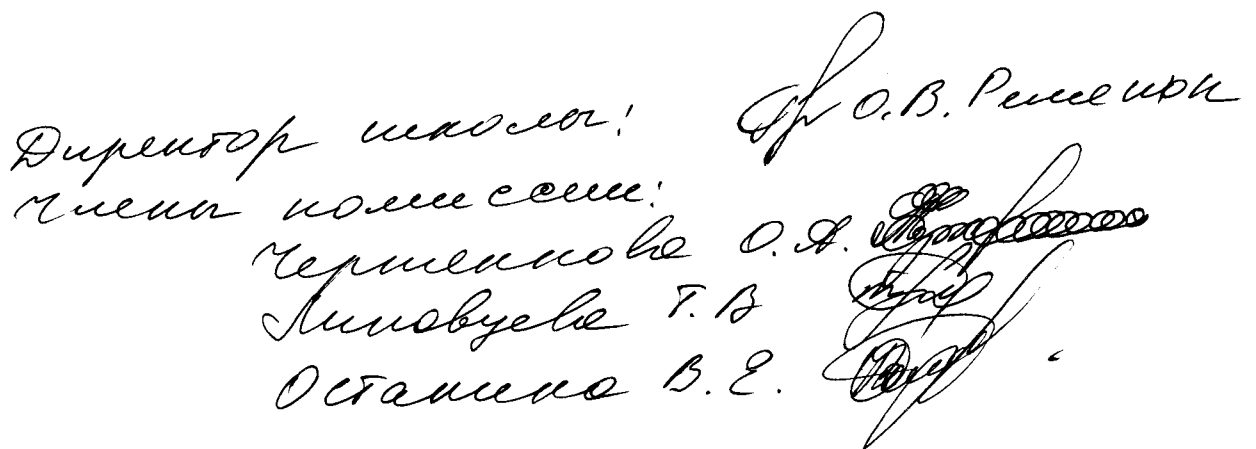 Директор школы: О.В. Ременюк
Члены комиссии:
Черменнова О.А.
Линовцева Т.В
Останина В.Е.